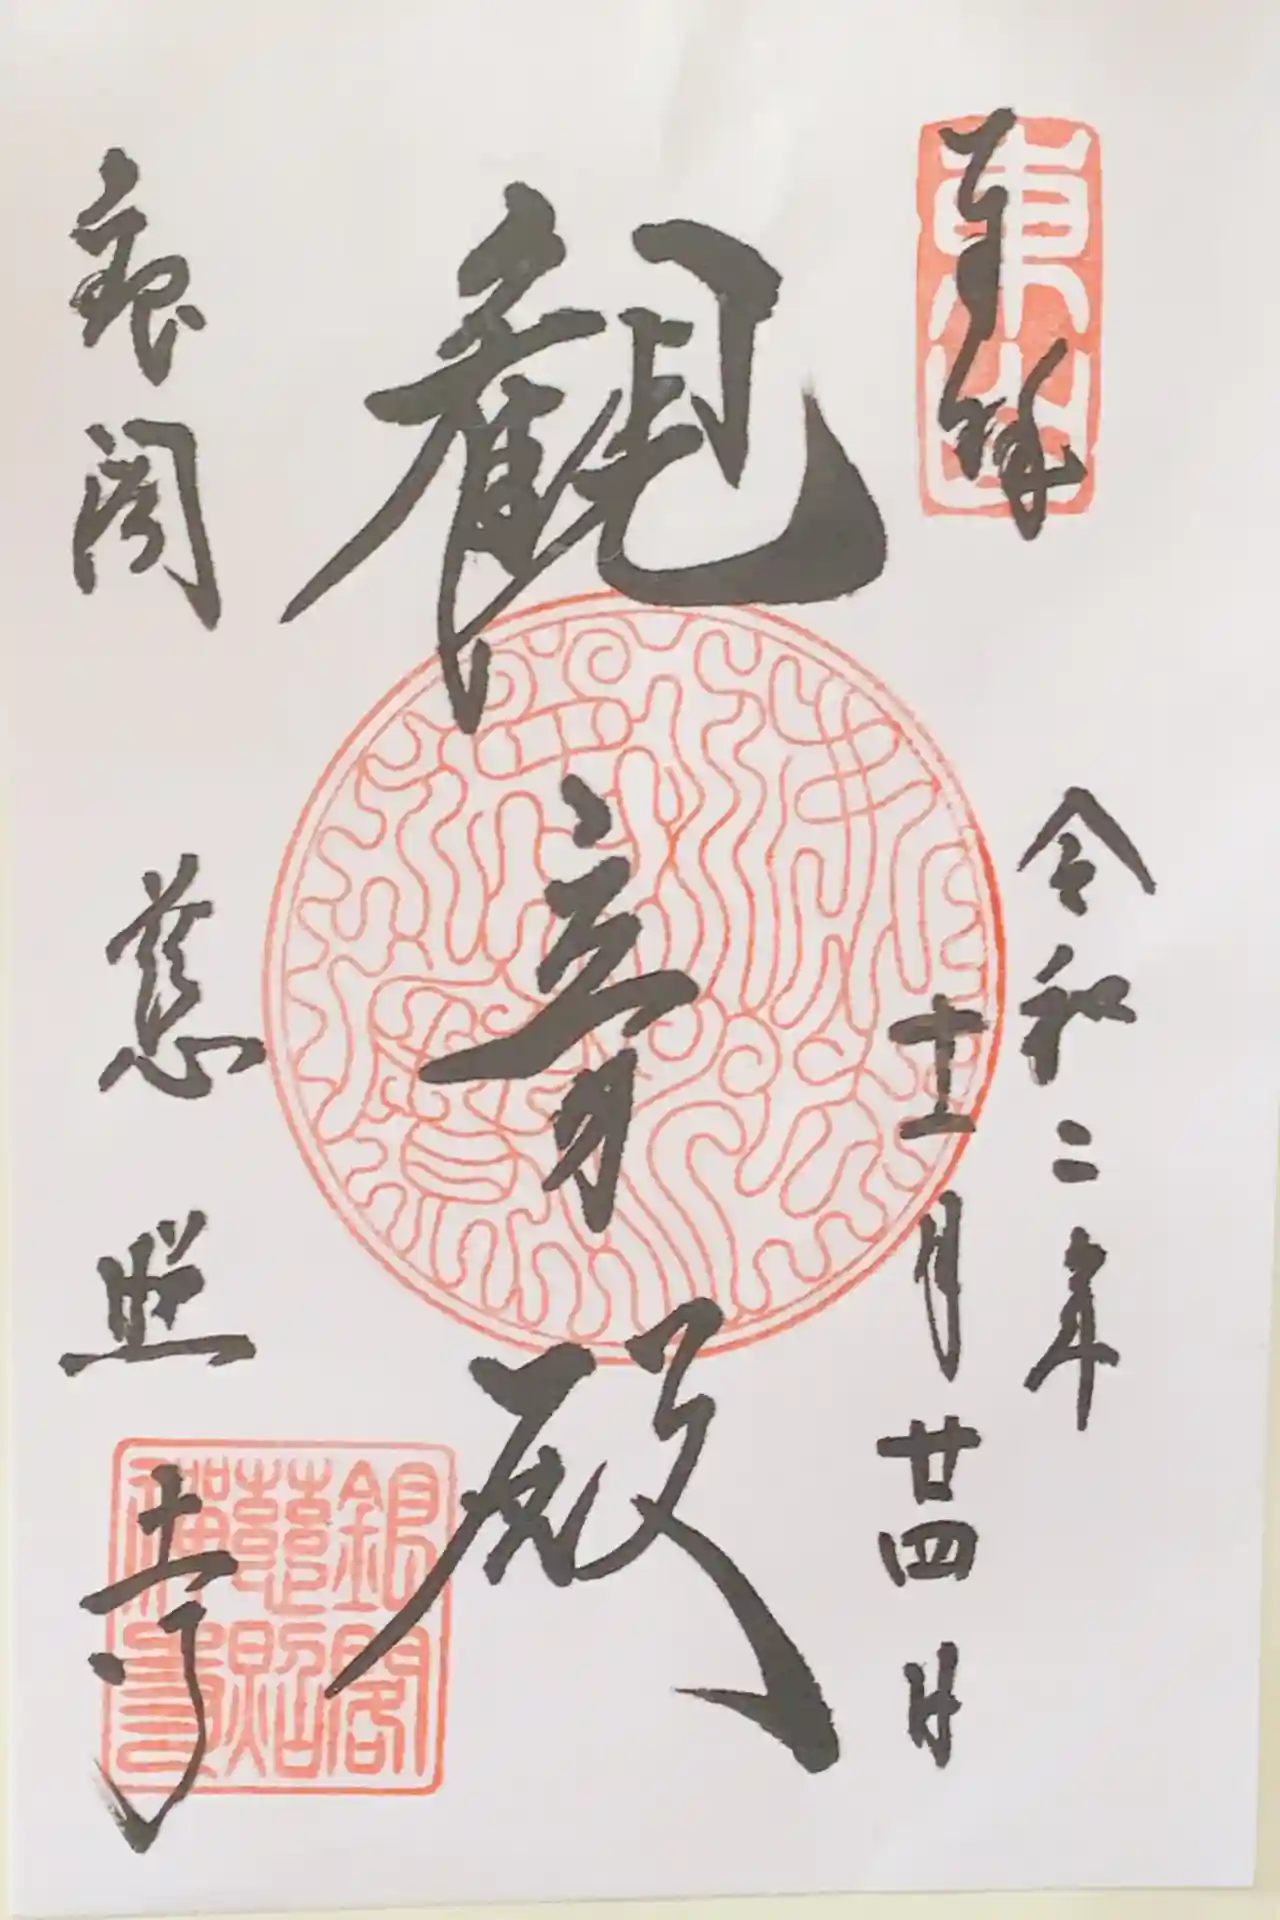 東山
奉拝
令和二年
十二月廿四日
観音殿
銀閣
慈照寺
銀閣
慈照
禅寺